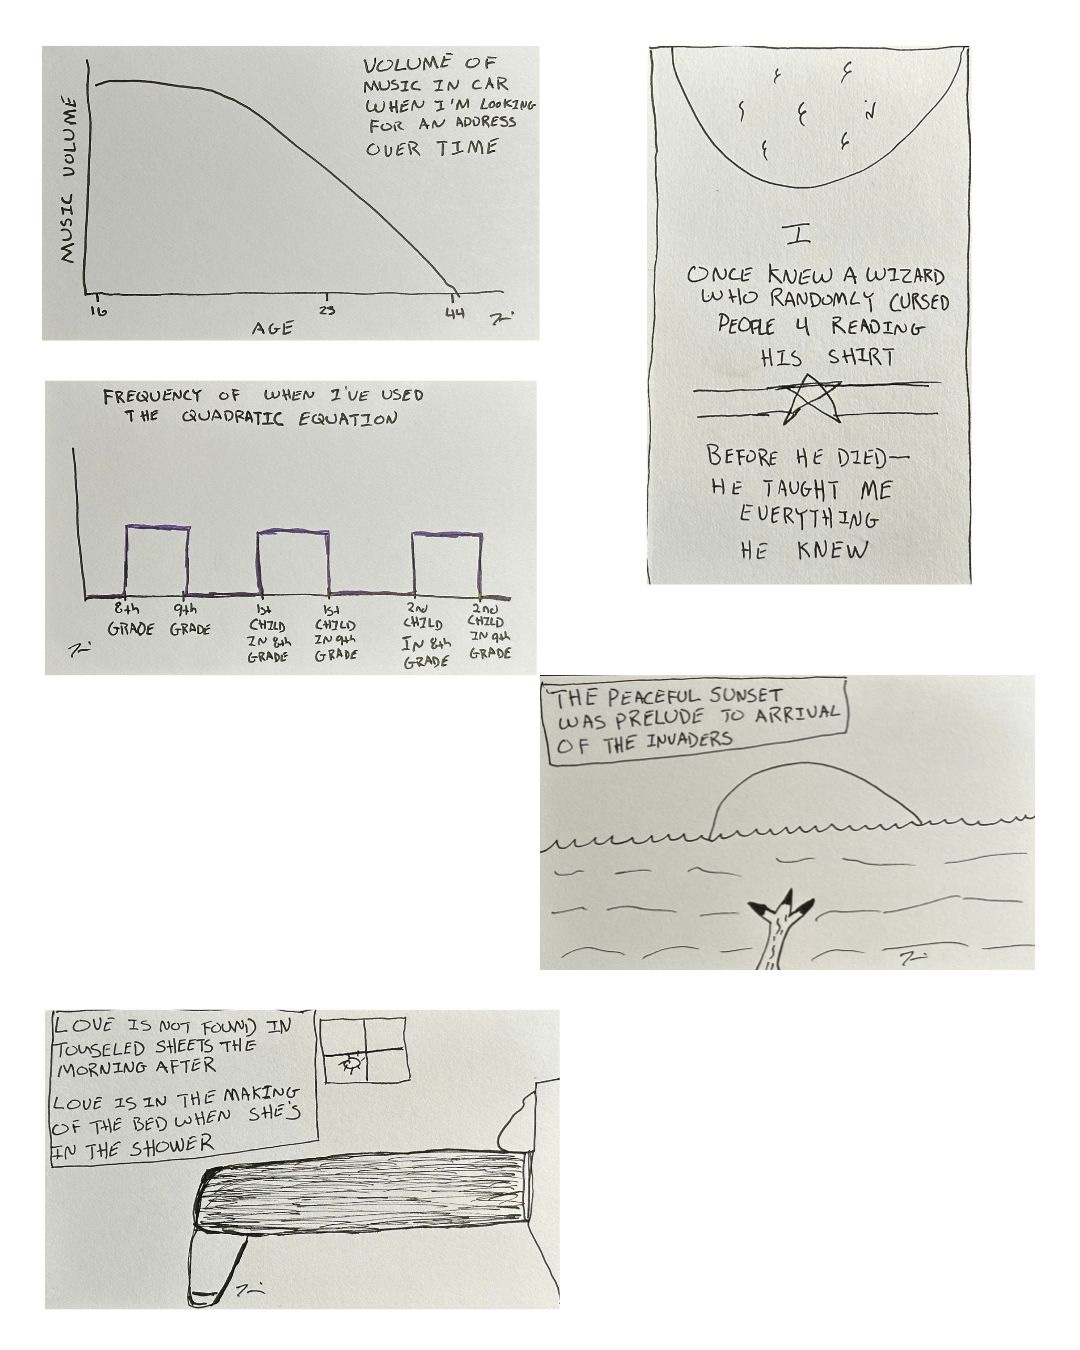 VOLUME OF
MUSIC IN CAR
WHEN I'M LOOKING
FOR AN ADDRESS
OVER TIME
MUSIC VOLUME
16
23
44
AGE
I
ONCE KNEW A WIZARD
WHO RANDOMLY CURSED
PEOPLE 4 READING
HIS SHIRT
BEFORE HE DIED—
HE TAUGHT ME
EVERYTHING
HE KNEW
FREQUENCY OF WHEN I'VE USED
THE QUADRATIC EQUATION
8th
GRADE
9th
GRADE
1st
CHILD
IN 8th
GRADE
1st
CHILD
IN 9th
GRADE
2nd
CHILD
IN 8th
GRADE
2nd
CHILD
IN 9th
GRADE
THE PEACEFUL SUNSET
WAS PRELUDE TO ARRIVAL
OF THE INVADERS
LOVE IS NOT FOUND IN
TOUSELED SHEETS THE
MORNING AFTER
LOVE IS IN THE MAKING
OF THE BED WHEN SHE'S
IN THE SHOWER